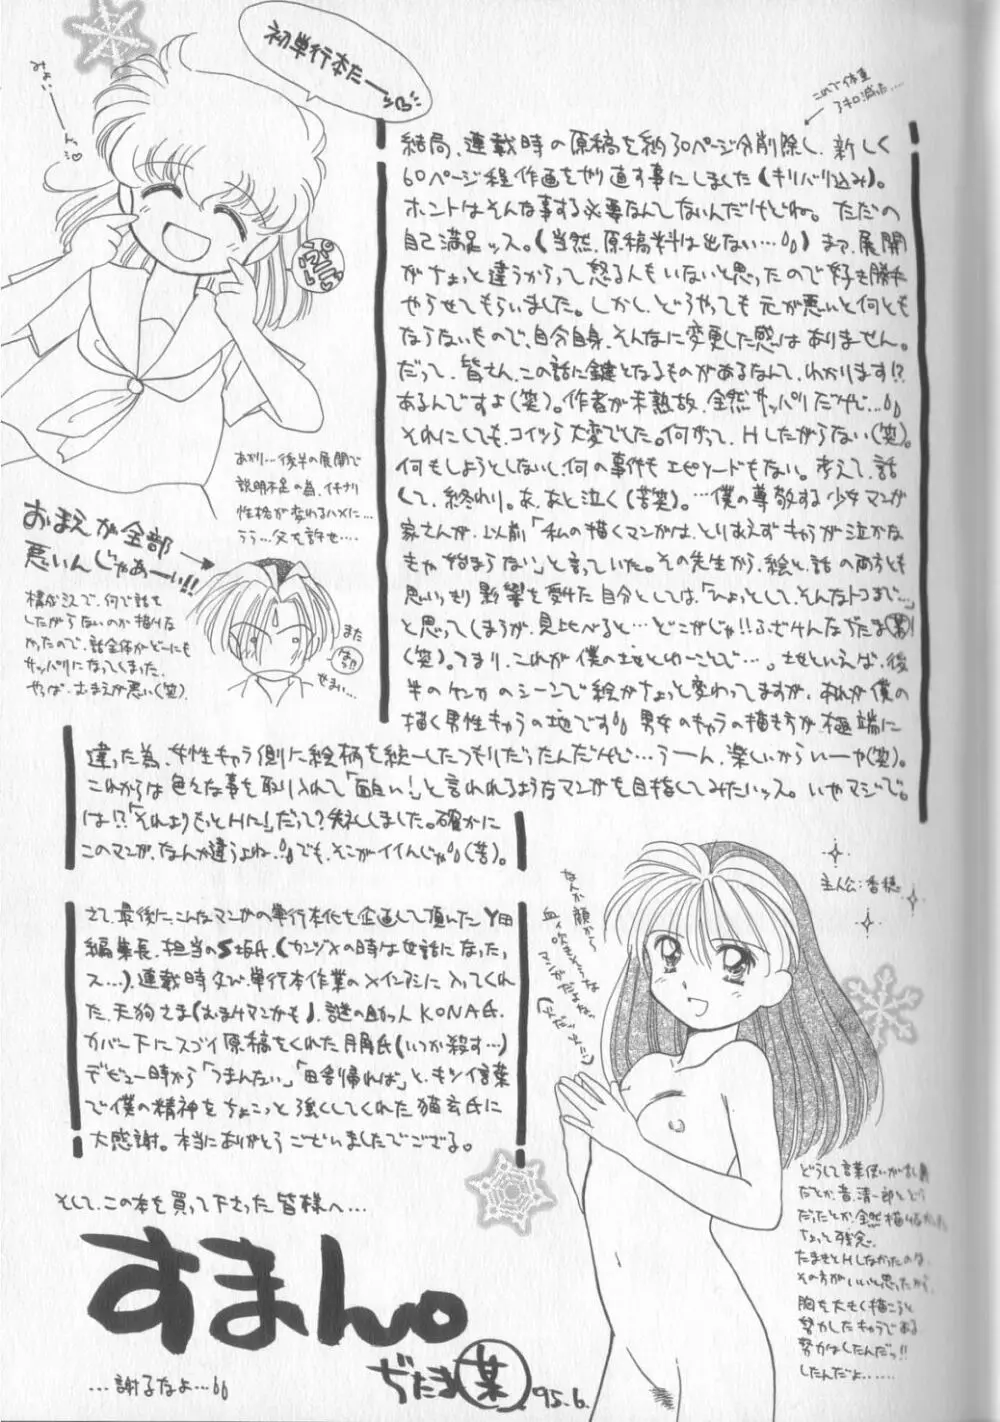 初単行本だー
みょぃーーーん
これで体重
結局、連載時の原稿を約30ページ分削除し、新しく
60ページ程作画をやり直す事にしました(キリバリ込み)。
ホントはそんな事する必要なんてないんだけどね。ただの
自己満足ッス。(当然、原稿料は出ない…)まァ、展開
がちょっと違うからって怒る人もいないと思ったので好き勝手
やらせてもらいました。しかし、どうやっても元が悪いと何とも
ならないもので、自分自身、そんなに変更した感はありません。
だって、皆さん、この話に鍵となるものがあるなんて、わかります!?
あるんですよ(笑)。作者が未熟故、全然サッパリだけど…
それにしても、コイツら大変でした。何がって、Hしたがらない(笑)。
何もしようとしないし、何の事件もエピソードもない。考えて、話
して、終わり。あ、あと泣く(苦笑)。…僕の尊敬する少女マンガ
家さんが、以前「私の描くマンガは、とりあえずキャラが泣かな
きゃ始まらない」と言っていた。その先生から、絵と、話の両方とも
思いっきり影響を受けた自分としては、「ひょっとして、そんなトコまで…」
と思ってしまうが、見比べると…どこがじゃ!!ふざけんなぢたま(某)!
(笑)。つまり、これが僕の地とゆーことで…。地といえば、後
半のケンカのシーンで絵がちょっと変わってますが、あれが僕の
描く男性キャラの地です 男女のキャラの描き方が極端に
違った為、女性キャラ側に絵柄を統一したつもりだったんだけど…うーん、楽しいからいーや(笑)。
これからは色々な事を取り入れて「面白い!」と言われるようなマンガを目指してみたいッス。いやマジで。
は!?「それよりもっとHに!」だって?失礼しました。確かに
このマンガ、なんか違うよね、でも、そこがイイんじゃ(苦)。
あかり…後半の展開で
説明不足の為、イキナリ
性格が変わるハメに…
うう…父を許せ…
おまえが全部
悪いんじゃあーい!!
構成ミスで、何で話を
したがらないのか描けな
かったので、話全体がどーにも
サッパリになってしまった
やっぱ、おまえが悪い(笑)
また
せまい…
さて、最後に、こんなマンガの単行本化を企画して頂いたY田
編集長、担当のS坂氏、(カンヅメの時は世話になった
ス…)、連載時及び、単行本作業のメインアシに入ってくれ
た、天狗さま(おまけマンガも)、謎の助っ人KONA氏、
カバー下にスゴイ原稿をくれた月角氏(いつか殺す…)
デビュー時から「つまんない」「田舎帰れば」と、キツイ言葉
で僕の精神をちょこっと強くしてくれた猫玄氏に
大感謝。本当にありがとうございましたでござる。
主人公:香穂
なんか顔から
どうして言葉使いが
だとか、昔、清一郎とどう
だったとか、全然描けなかった
ちょって残念。
たませとHしなかったのは、
その方がいいと思ったから
胸を大きく描こうと
努力したキャラである
努力はしたんだっ!!
したんだよ……
そして、この本を買って下さった皆様へ…
すまん。
ぢたま(某) 95.6.
…謝るなよ…